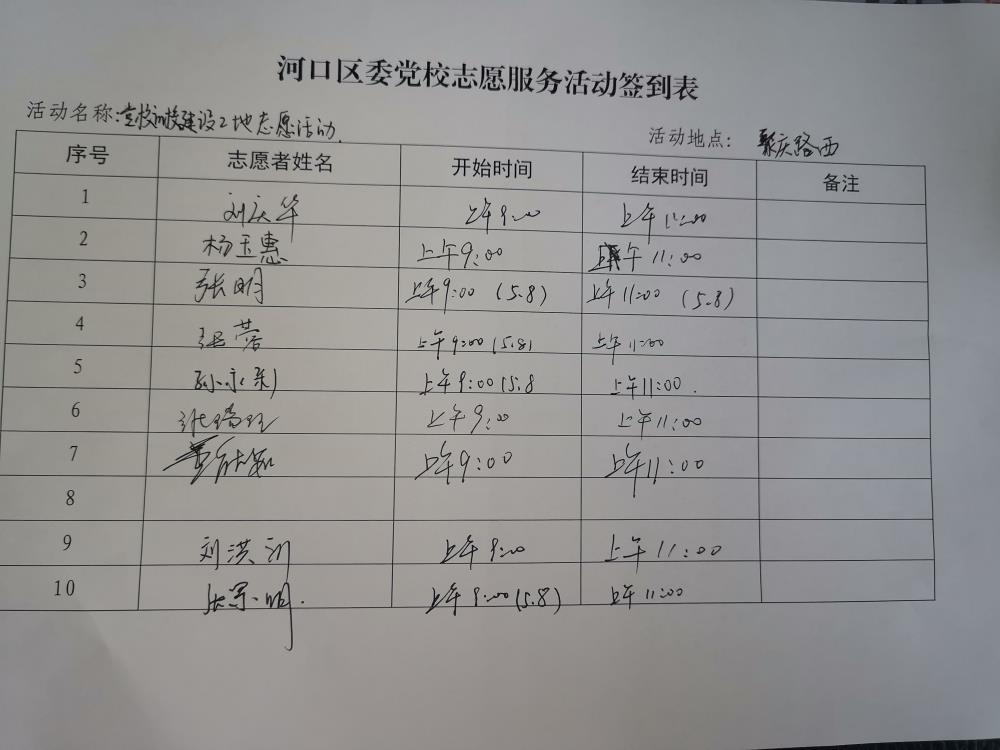 河口区委党校志愿服务活动签到表
活动名称:党校新校建设工地志愿活动.
活动地点: 聚庆路西
序号 志愿者姓名 开始时间 结束时间 备注
1 刘庆华 上午9:00 上午11:00
2 杨玉惠 上午9:00 上午11:00
3 张明 上午9:00 (5.8) 上午11:00 (5.8)
4 张蓉 上午9:00 (5.8) 上午11:00
5 上午9:00 (5.8 上午11:00.
6 上午9:00 上午11:00
7 上午9:00 上午11:00
8
9 刘洪训 上午9:00 上午11:00
10 上午9:00 (5.8) 上午11:00